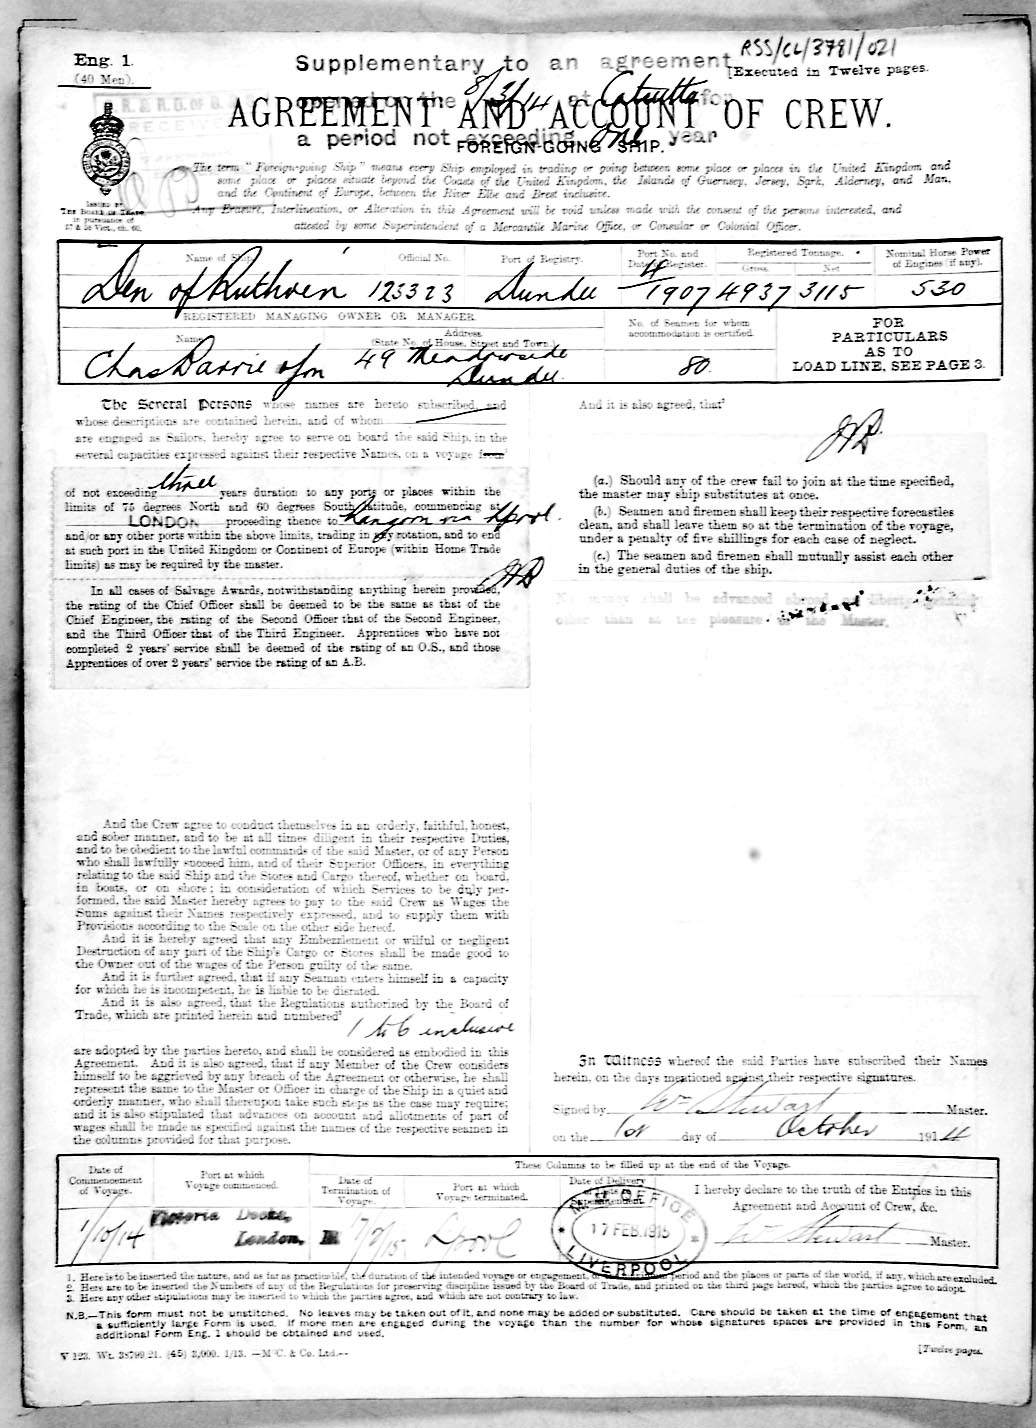 Eng. 1.
(40 Men).
RSS/CL/3781/021
[Executed in Twelve pages.
Supplementary to an agreement
opened on the 8/3/14 at Calcutta for
a period not exceeding one year
RECEIVE
AGREEMENT AND ACCOUNT OF CREW.
FOREIGN-GOING SHIP.
ISSUED BY
THE BOARD OF TRADE
in pursuance of
57 & 58 Vict., ch. 60.
The term "Foreign-going Ship" means every Ship employed in trading or going between some place or places in the United Kingdom and
some place or places situate beyond the Coasts of the United Kingdom, the Islands of Guernsey, Jersey, Sark, Alderney, and Man,
and the Continent of Europe, between the River Elbe and Brest inclusive.
Any Erasure, Interlineation, or Alteration in this Agreement will be void unless made with the consent of the persons interested, and
attested by some Superintendent of a Mercantile Marine Office, or Consular or Colonial Officer.
Name of Ship. Official No. Port of Registry. Port No. and Date of Register. Registered Tonnage. Gross. Net Nominal Horse Power of Engines (if any).
Den of Ruthven 123323 Dundee 4/1907 4937 3115 530
REGISTERED MANAGING OWNER OR MANAGER.
Name Address (State No. of House, Street and Town.)
No. of Seamen for whom accommodation is certified.
FOR
PARTICULARS
AS TO
LOAD LINE, SEE PAGE 3.
Chas Barrie & Son 49 Meadowside Dundee. 80.
The Several Persons whose names are hereto subscribed, and
whose descriptions are contained herein, and of whom
are engaged as Sailors, hereby agree to serve on board the said Ship, in the
several capacities expressed against their respective Names, on a voyage from
of not exceeding three years duration to any ports or places within the
limits of 75 degrees North and 60 degrees South latitude, commencing at
LONDON proceeding thence to Rangoon via Lpool.
and/or any other ports within the above limits, trading in any rotation, and to end
at such port in the United Kingdom or Continent of Europe (within Home Trade
limits) as may be required by the master.
In all cases of Salvage Awards, notwithstanding anything herein provided,
the rating of the Chief Officer shall be deemed to be the same as that of the
Chief Engineer, the rating of the Second Officer that of the Second Engineer,
and the Third Officer that of the Third Engineer. Apprentices who have not
completed 2 years' service shall be deemed of the rating of an O.S., and those
Apprentices of over 2 years' service the rating of an A.B.
And the Crew agree to conduct themselves in an orderly, faithful, honest,
and sober manner, and to be at all times diligent in their respective Duties,
and to be obedient to the lawful commands of the said Master, or of any Person
who shall lawfully succeed him, and of their Superior Officers, in everything
relating to the said Ship and the Stores and Cargo thereof, whether on board,
in boats, or on shore; in consideration of which Services to be duly per-
formed, the said Master hereby agrees to pay to the said Crew as Wages the
Sums against their Names respectively expressed, and to supply them with
Provisions according to the Scale on the other side hereof.
And it is hereby agreed that any Embezzlement or wilful or negligent
Destruction of any part of the Ship's Cargo or Stores shall be made good to
the Owner out of the wages of the Person guilty of the same.
And it is further agreed, that if any Seaman enters himself in a capacity
for which he is incompetent, he is liable to be disrated.
And it is also agreed, that the Regulations authorized by the Board of
Trade, which are printed herein and numbered²
1 to 6 inclusive
are adopted by the parties hereto, and shall be considered as embodied in this
Agreement. And it is also agreed, that if any Member of the Crew considers
himself to be aggrieved by any breach of the Agreement or otherwise, he shall
represent the same to the Master or Officer in charge of the Ship in a quiet and
orderly manner, who shall thereupon take such steps as the case may require;
and it is also stipulated that advances on account and allotments of part of
wages shall be made as specified against the names of the respective seamen in
the columns provided for that purpose.
And it is also agreed, that³
(a.) Should any of the crew fail to join at the time specified,
the master may ship substitutes at once.
(b.) Seamen and firemen shall keep their respective forecastles
clean, and shall leave them so at the termination of the voyage,
under a penalty of five shillings for each case of neglect.
(c.) The seamen and firemen shall mutually assist each other
in the general duties of the ship.
No money shall be advanced abroad or liberty
other than at the pleasure of the Master.
In Witness whereof the said Parties have subscribed their Names
herein, on the days mentioned against their respective signatures.
Signed by Wm Stewart Master.
on the 1st day of October 1914
These Columns to be filled up at the end of the Voyage.
Date of Commencement of Voyage. Port at which Voyage commenced. Date of Termination of Voyage. Port at which Voyage terminated. Date of Delivery
I hereby declare to the truth of the Entries in this
Agreement and Account of Crew, &c.
1/10/14 Victoria Docks, London, 17/2/15 Lpool Wm Stewart Master.
M.M. OFFICE
17 FEB. 1915
LIVERPOOL
1. Here is to be inserted the nature, and as far as practicable, the duration of the intended voyage or engagement, or the maximum period and the places or parts of the world, if any, which are excluded.
2. Here are to be inserted the Numbers of any of the Regulations for preserving discipline issued by the Board of Trade, and printed on the third page hereof, which the parties agree to adopt.
3. Here any other stipulations may be inserted to which the parties agree, and which are not contrary to law.
N.B.—This form must not be unstitched. No leaves may be taken out of it, and none may be added or substituted. Care should be taken at the time of engagement that
a sufficiently large Form is used. If more men are engaged during the voyage than the number for whose signatures spaces are provided in this Form, an
additional Form Eng. 1 should be obtained and used.
V 123. Wt. 38799.21. (45) 3,000. 1/13. —McC. & Co. Ltd.—
[Twelve pages.